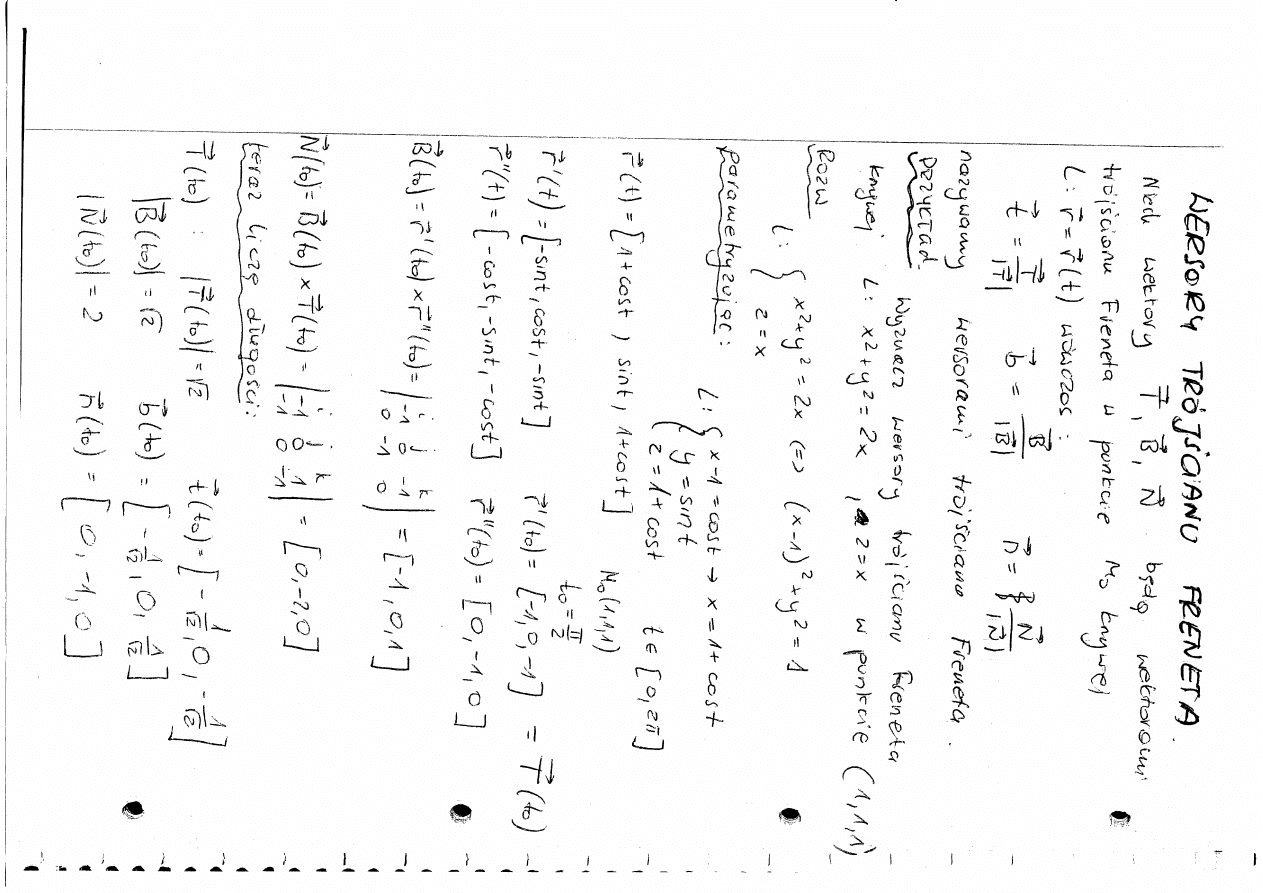 WERSORY TRÓJŚCIANU FRENETA.
Niech wektory T⃗, B⃗, N⃗ będą wektorami
trójścianu Freneta w punkcie M₀ krzywej
L: r⃗ = r⃗(t) wówczas:
t⃗ = T⃗/|T⃗| b⃗ = B⃗/|B⃗| n⃗ = N⃗/|N⃗|
nazywamy wersorami trójścianu Freneta.
Przykład. Wyznacz wersory trójścianu Freneta
krzywej L: x²+y²=2x, z=x w punkcie (1,1,1)
Rozw
L: { x²+y²=2x (=) (x-1)²+y²=1
z=x
parametryzując: L: { x-1=cost → x=1+cost
y=sint
z=1+cost t∈[0,2π]
r⃗(t)=[1+cost, sint, 1+cost] M₀(1,1,1)
t₀=π/2
r⃗'(t)=[-sint, cost, -sint] r⃗'(t₀)=[-1,0,-1] = T⃗(t₀)
r⃗''(t)=[-cost, -sint, -cost] r⃗''(t₀)=[0,-1,0]
B⃗(t₀)=r⃗'(t₀)×r⃗''(t₀)= |i j k; -1 0 -1; 0 -1 0| = [-1,0,1]
N⃗(t₀)=B⃗(t₀)×T⃗(t₀)= |i j k; -1 0 1; -1 0 -1| = [0,-2,0]
teraz liczę długości:
T⃗(t₀): |T⃗(t₀)|=√2 t⃗(t₀)=[-1/√2, 0, -1/√2]
|B⃗(t₀)|=√2 b⃗(t₀)=[-1/√2, 0, 1/√2]
|N⃗(t₀)|=2 n⃗(t₀)=[0,-1,0]